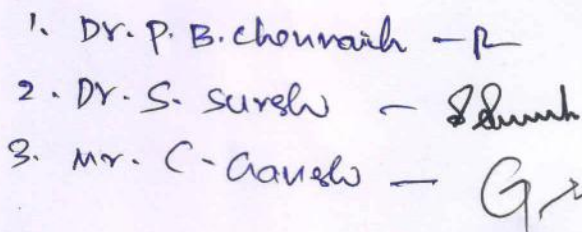 1. Dr. P. B. Chennaiah -
2. Dr. S. Suresh -
3. Mr. C. Ganesh -